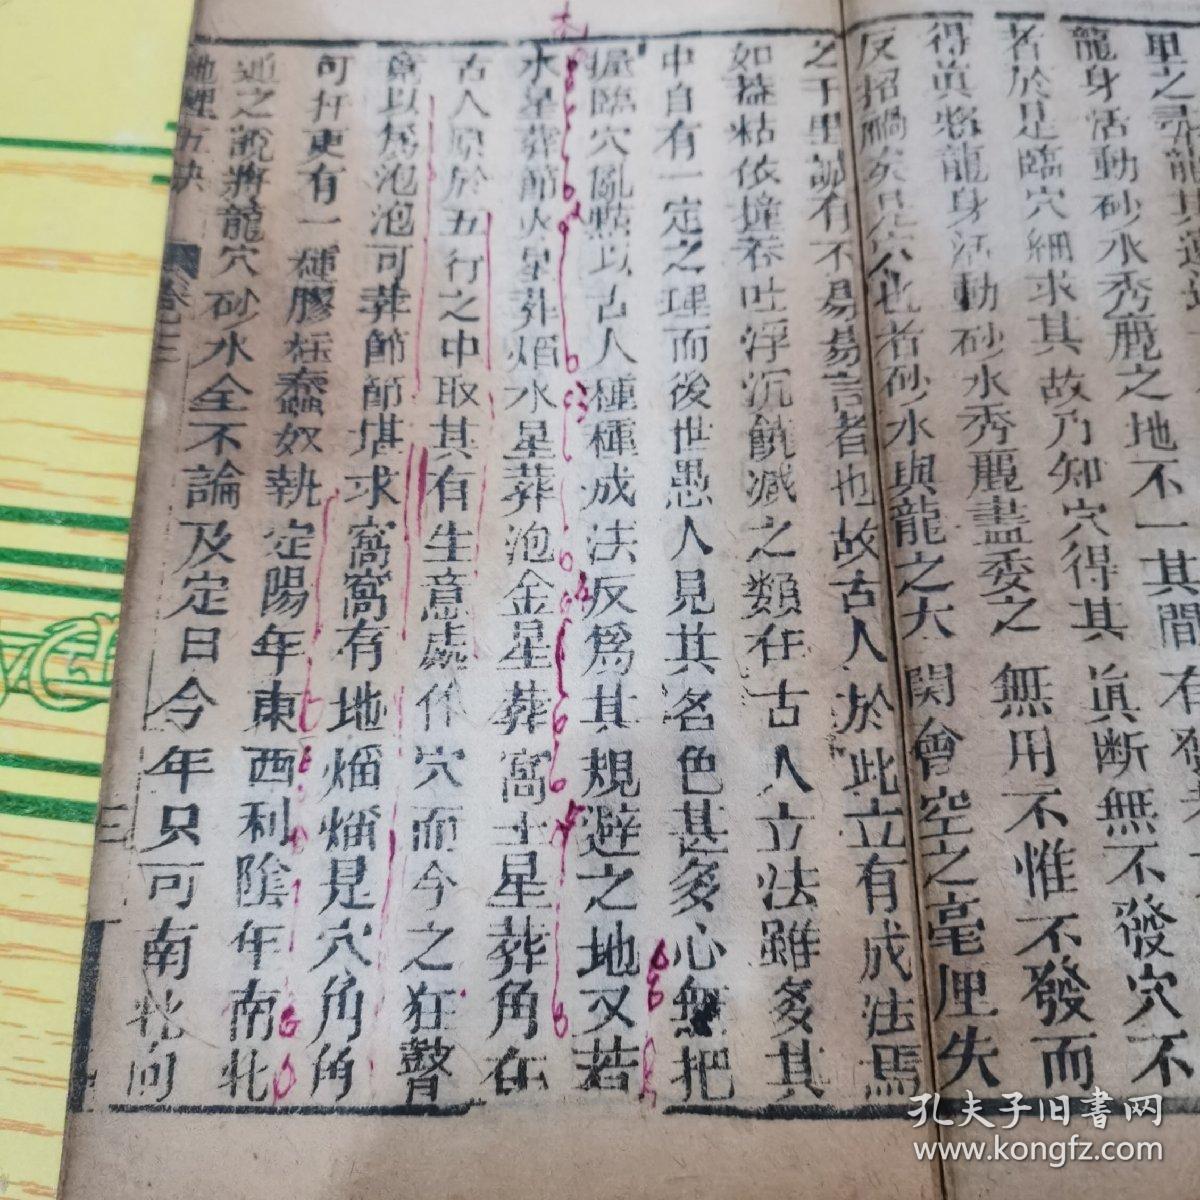 里之尋龍其
龍身活動砂水秀麗之地不一其間有發
者於是臨穴細求其故乃知穴得其眞斷無不發穴不
得眞將龍身活動砂水秀麗盡委之無用不惟不發而
反招禍矣是穴也者砂水與龍之大関會空之毫厘失
之千里誠有不易易言者也故古人於此立有成法焉
如葢粘依撞吞吐浮沉饒減之類在古人立法雖多其
中自有一定之理而後世愚人見其名色甚多心無把
握臨穴亂點以古人種種成法反爲其規避之地又若
水星葬節火星葬熖水星葬泡金星葬窩土星葬角在
古人原於五行之中取其有生意處作穴而今之狂瞽
竟以爲泡泡可葬節節堪求窩窩有地熖熖是穴角角
可扦更有一種膠柱蠢奴執定陽年東西利陰年南北
通之說將龍穴砂水全不論及定日今年只可南北向
地理五訣
卷之三
三
孔夫子旧書网
www.kongfz.com